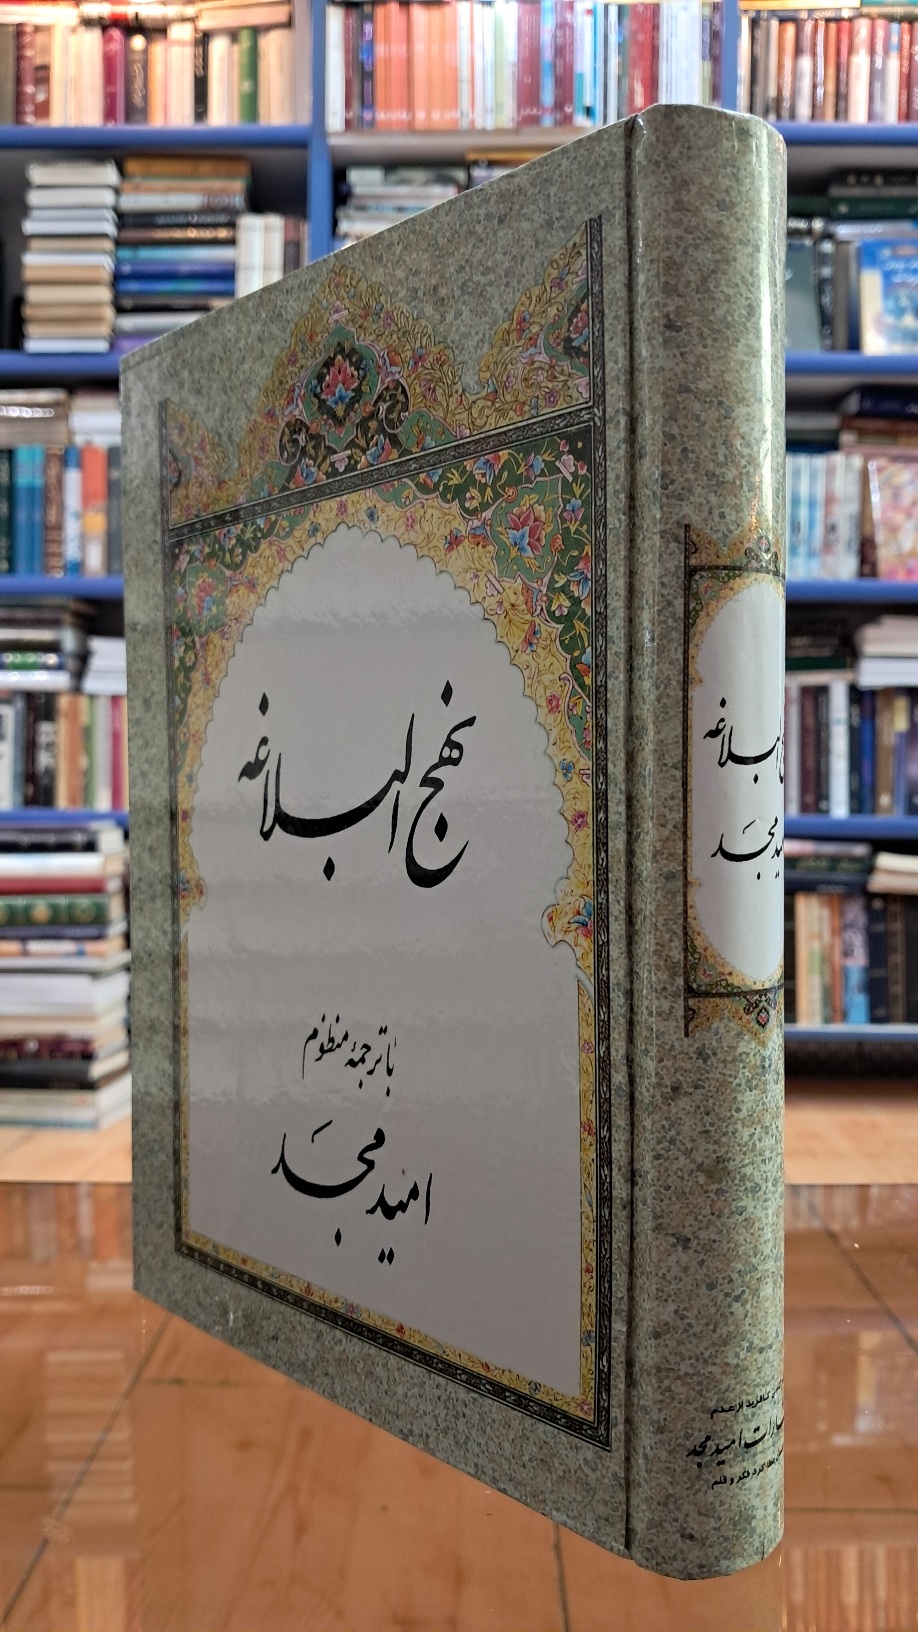 نهج البلاغه
با ترجمهٔ منظوم
امید مجد
البلاغه
مجد
کافرید از عدم
امید مجد
کرد فکر و قلم